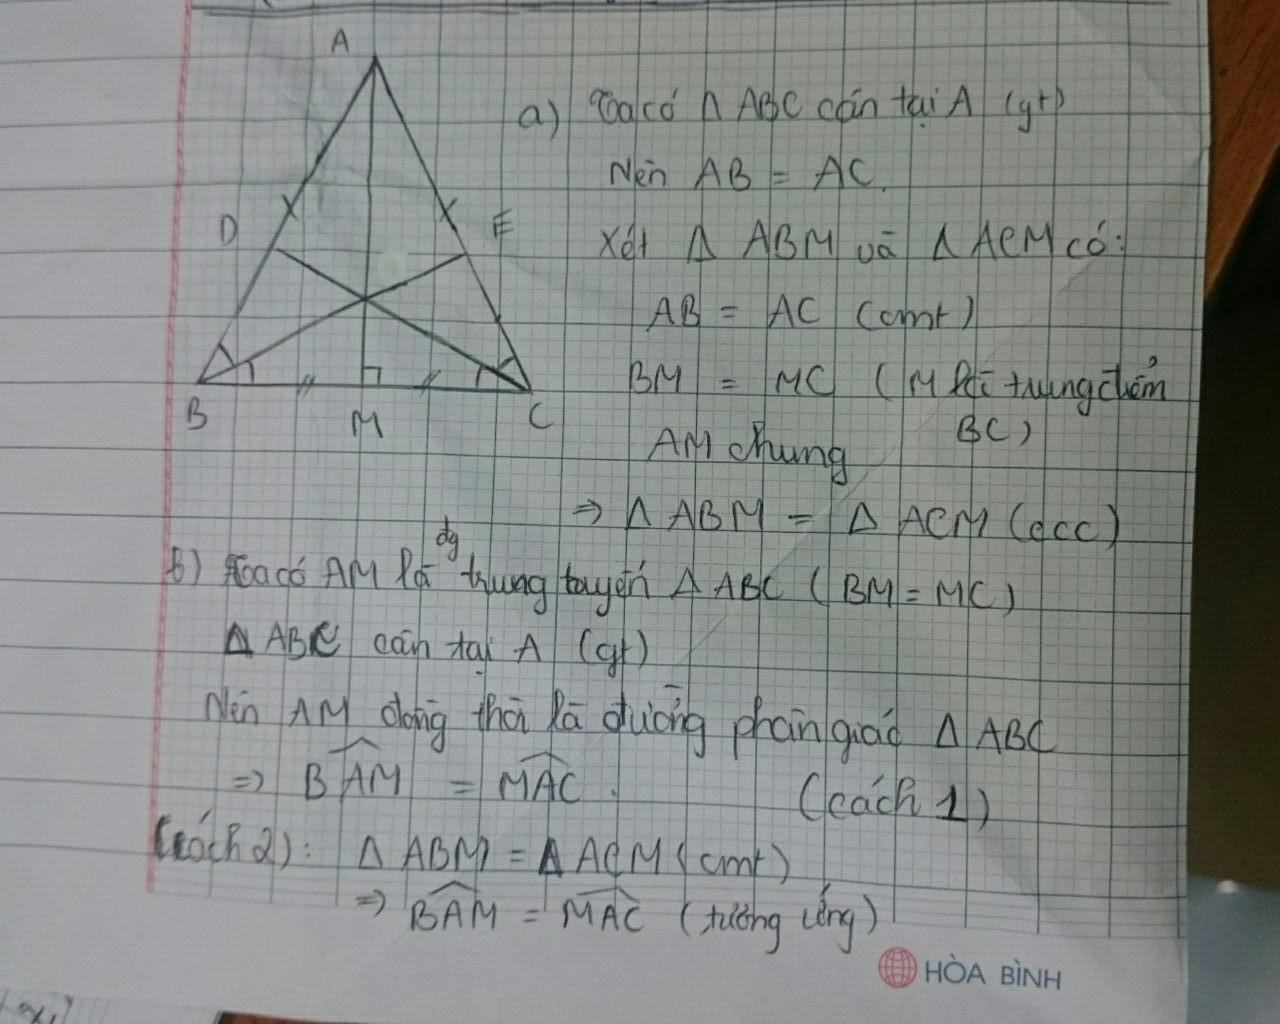 A
D
E
B
M
C
a) Ta có Δ ABC cân tại A (gt)
Nên AB = AC.
Xét Δ ABM và Δ ACM có:
AB = AC (cmt)
BM = MC ( M là trung điểm
BC)
AM chung
⇒ Δ ABM = Δ ACM (ccc)
b) Ta có AM là đg trung tuyến Δ ABC ( BM = MC)
Δ ABC cân tại A (gt)
Nên AM đồng thời là đường phân giác Δ ABC
⇒ BAM = MAC . (cách 1)
(Cách 2) : Δ ABM = Δ ACM (cmt)
⇒ BAM = MAC (tương ứng)
HÒA BÌNH